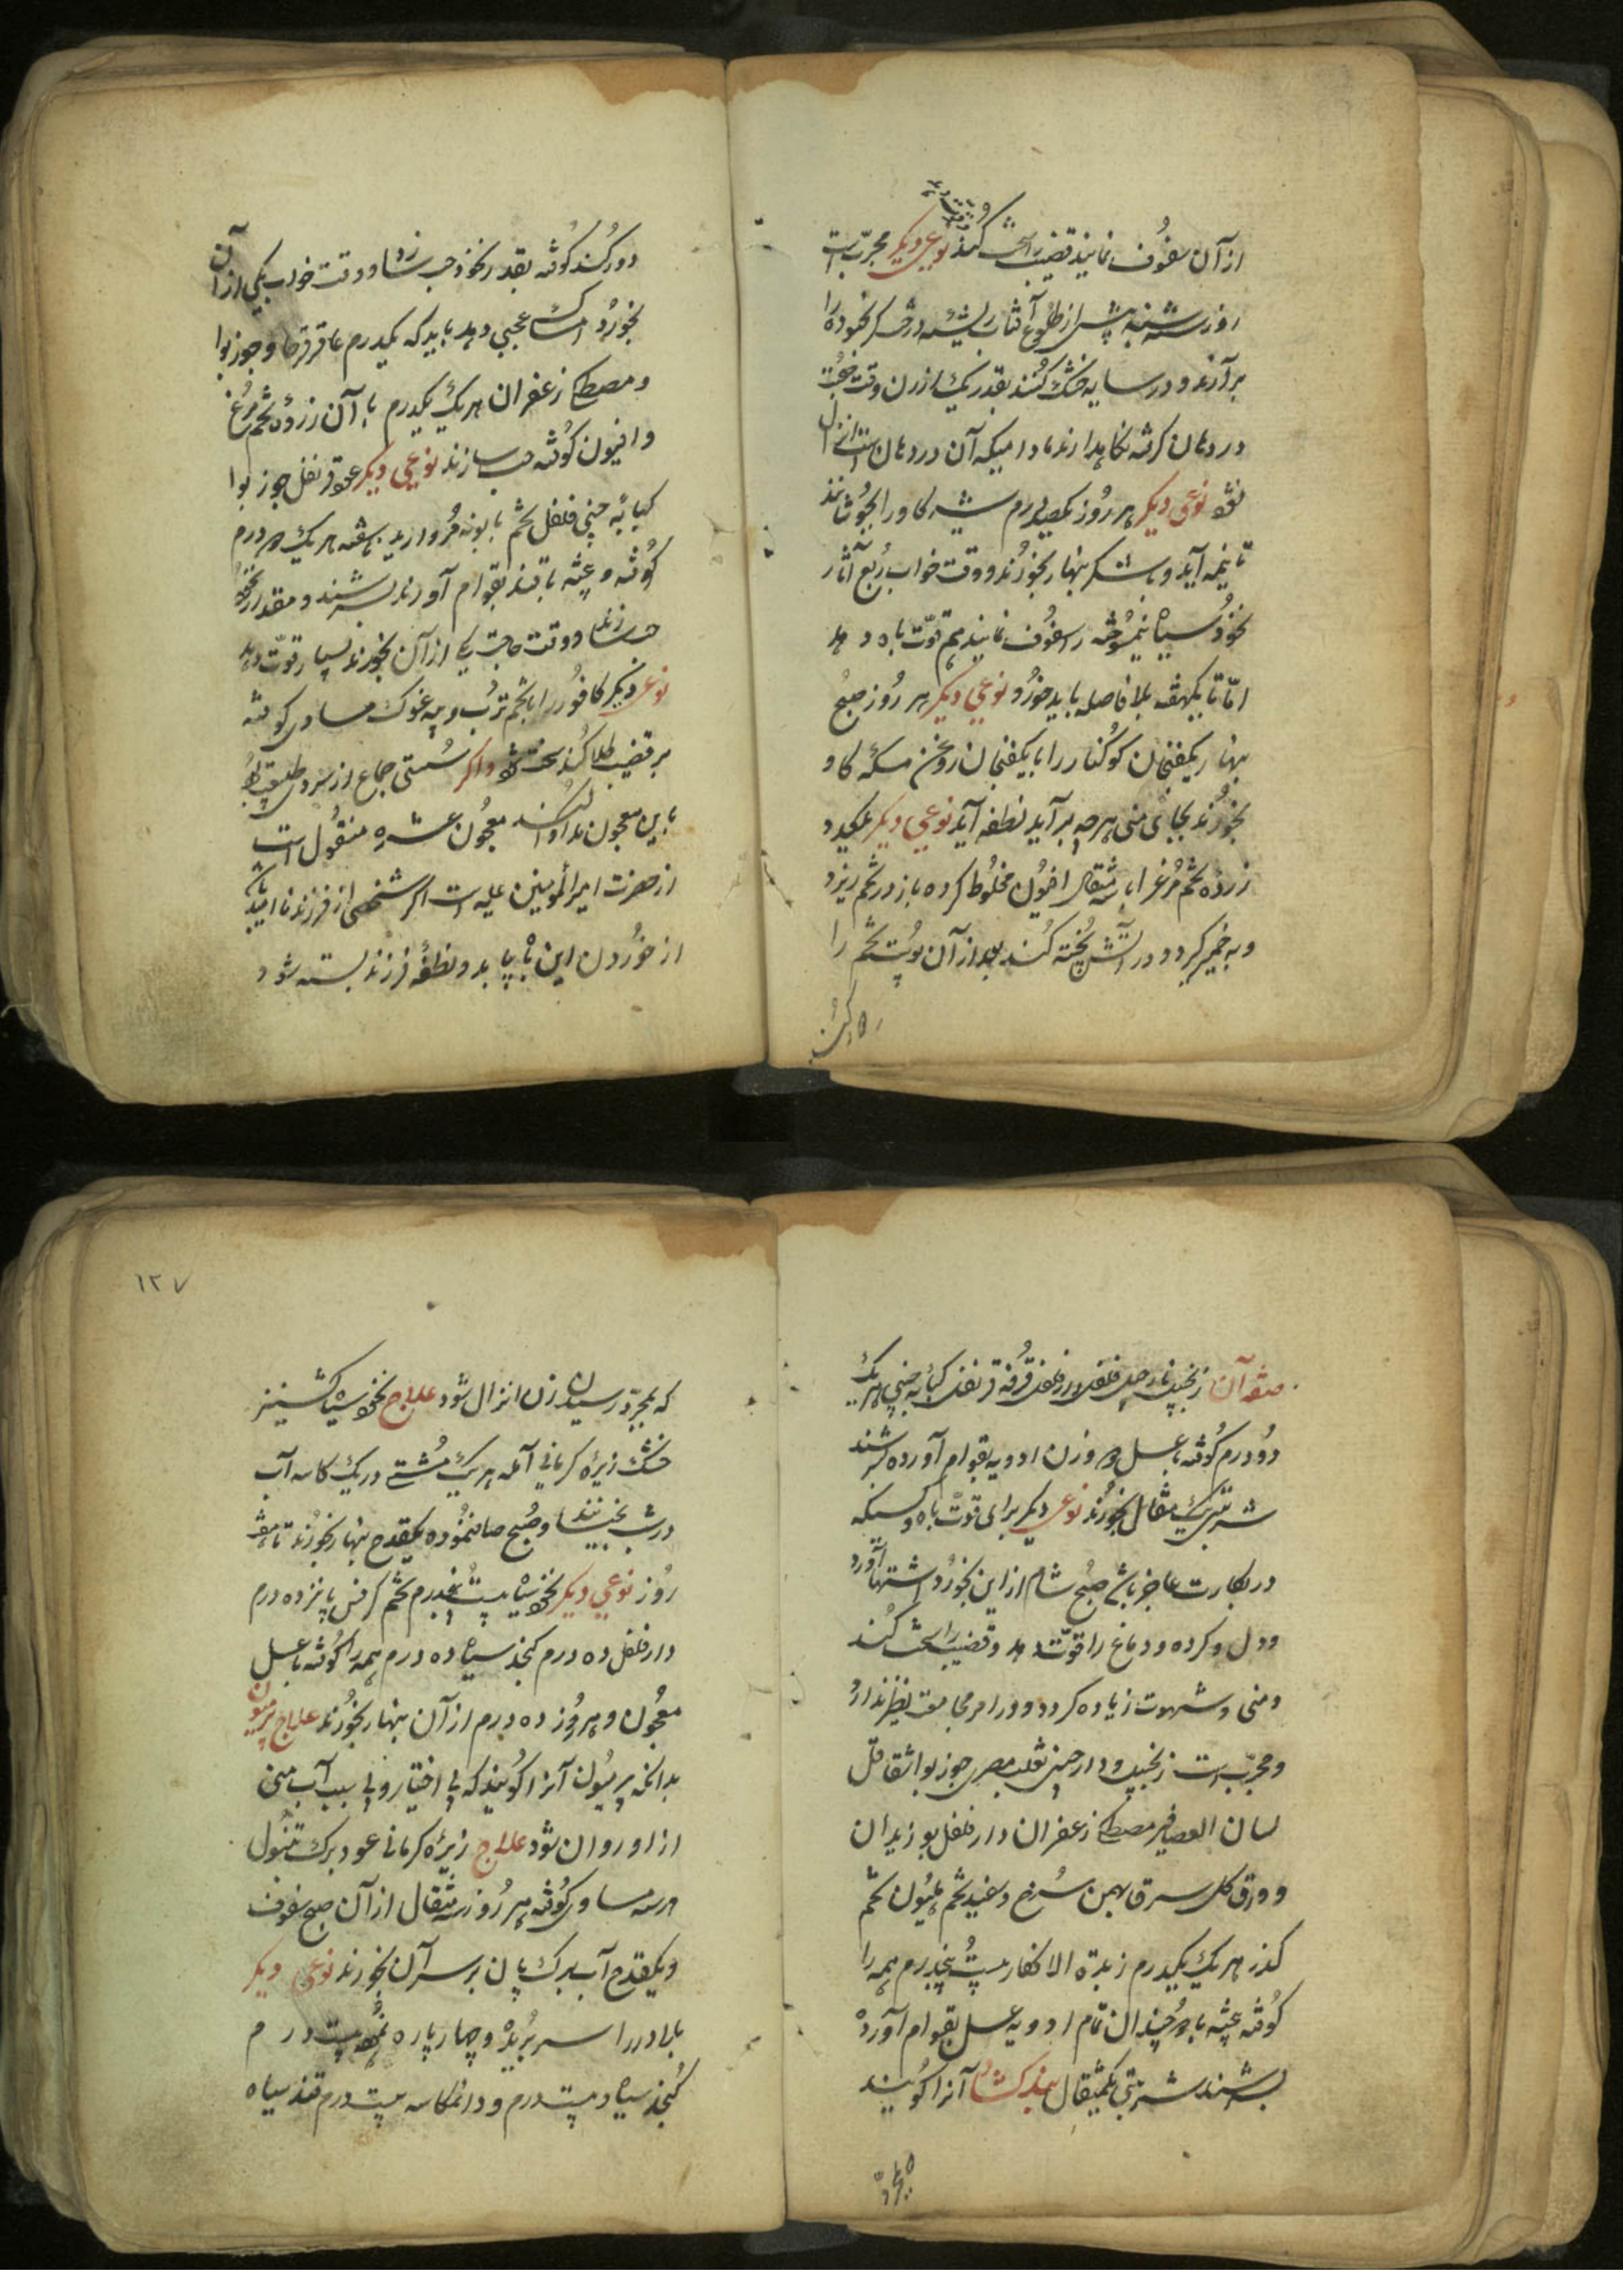 از آن سفوف نمایند قضیب را سخت کند نوعی دیکر مجرّب است
روز سه شنبه پیش از طلوع آفتاب ریشه درخت
برآرند و در سایه خشک کنند بقدر یک از آن وقت صحبت
در دهان کرفته نکاه بدارند مادامیکه آن در دهان است انزال
نشود نوعی دیکر هر روز یکصد درم شیر کاو را بجوشانند
تا نیمه آید و با شکر نهار بخورند و وقت خواب ربع آثار
نخود سیاه نیمسوخته را سفوف نمایند هم قوّت باه دهد
امّا تا یکهفته بلا فاصله باید خورد نوعی دیکر هر روز صبح
نهار یکفنجان کوکنار را با یکفنجان روغن مسکه کاو
بخورند بجای منی هرچه برآید نطفه آید نوعی دیکر یکعدد
زرده تخم مرغ را با سه مثقال افیون مخلوط کرده باز در تخم ریزد
و به خمیر کیرد و در آتش پخته کند بعد از آن پوست تخم را
دور کند کوفته بقدر نخود حب سازد و وقت خواب یکی از آن
بخورد امساک عجبی دهد باید که یکدرم عاقرقرحا و جوز بوا
و مصطکی زعفران هر یک یکدرم با آن زردهٔ تخم مرغ
و افیون کوفته حب سازند نوعی دیکر عود قرنفل جوز بوا
کبابه چینی فلفل تخم بابونه مروارید ناسفته هر یک دو درم
کوفته و بیخته با قند بقوام آورند بسرشند و مقدار نخود
حب سازند و وقت حاجت یکی از آن بخورند بسیار قوّت دهد
نوعی دیکر کافور را با تخم ترب و پیه غوک مساوی کوفته
بر قضیب طلا کند سخت شود و اکر سستی جماع از سردی
باین معجون مداوا کنند معجون عشره منقول است
از حضرت امیرالمومنین علیه اکر شخصی از فرزند نا امید باشد
از خوردن این باه بیابد و نطفهٔ فرزند بسته شود
صفة آن زنجبیل دارچینی فلفل دارفلفل قرفه قرنفل کبابه چینی هر یک
دو درم کوفته با عسل هم وزن ادویه بقوام آورده بسرشند
شربتی یک مثقال بخورند نوعی دیکر برای قوّت باه و کسیکه
در بکارت عاجز باشد صبح شام از این بخورد اشتها آورد
و دل و کرده و دماغ را قوّت دهد و قضیب را سخت کند
و منی و شهوت زیاده کردد و در امر مجامعت نظیر ندارد
و مجرّب است زنجبیل و دارچینی ثعلب مصری جوز بوا شقاقل
لسان العصافیر مصطکی زعفران دارفلفل بوزیدان
و ورق کل سرخ بهمن سرخ و سفید تخم هلیون تخم
کذر هر یک یکدرم زبدة الاظفار بیست پنجدرم همه را
کوفته بیخته با دو چندان تمام ادویه عسل بقوام آورده
بسرشند شربتی یکمثقال بند کشاد آنرا کویند
۱۲۷
که بمجرّد رسیدن زن انزال شود علاج نخود سیاه کشنیز
خشک زیره کرمانی آمله هر یک مشتی در یک کاسه آب
در شب بخیسانند و صبح صاف نموده یکقدح نهار بخورند تا هفت
روز نوعی دیکر نخود سیاه بیست پنجدرم تخم کرفس پانزده درم
دارفلفل ده درم کنجد سیاه ده درم همه را کوفته با عسل
معجون و هر روز ده درم از آن نهار بخورند علاج پرمیون
بدانکه پرمیون آنرا کویند که بی اختیار و بی سبب آب منی
از او روان شود علاج زیرهٔ کرمانی عود برک تنبول
هر سه مساوی کوفته هر روز سه مثقال از آن صبح سفوف
و یکقدح آب برک پان بر سر آن بخورند نوعی دیکر
بلادر را سر بریده و چهار پاره نموده بیست درم
کنجد سیاه بیست درم و دانکاسه بیست درم قند سیاه